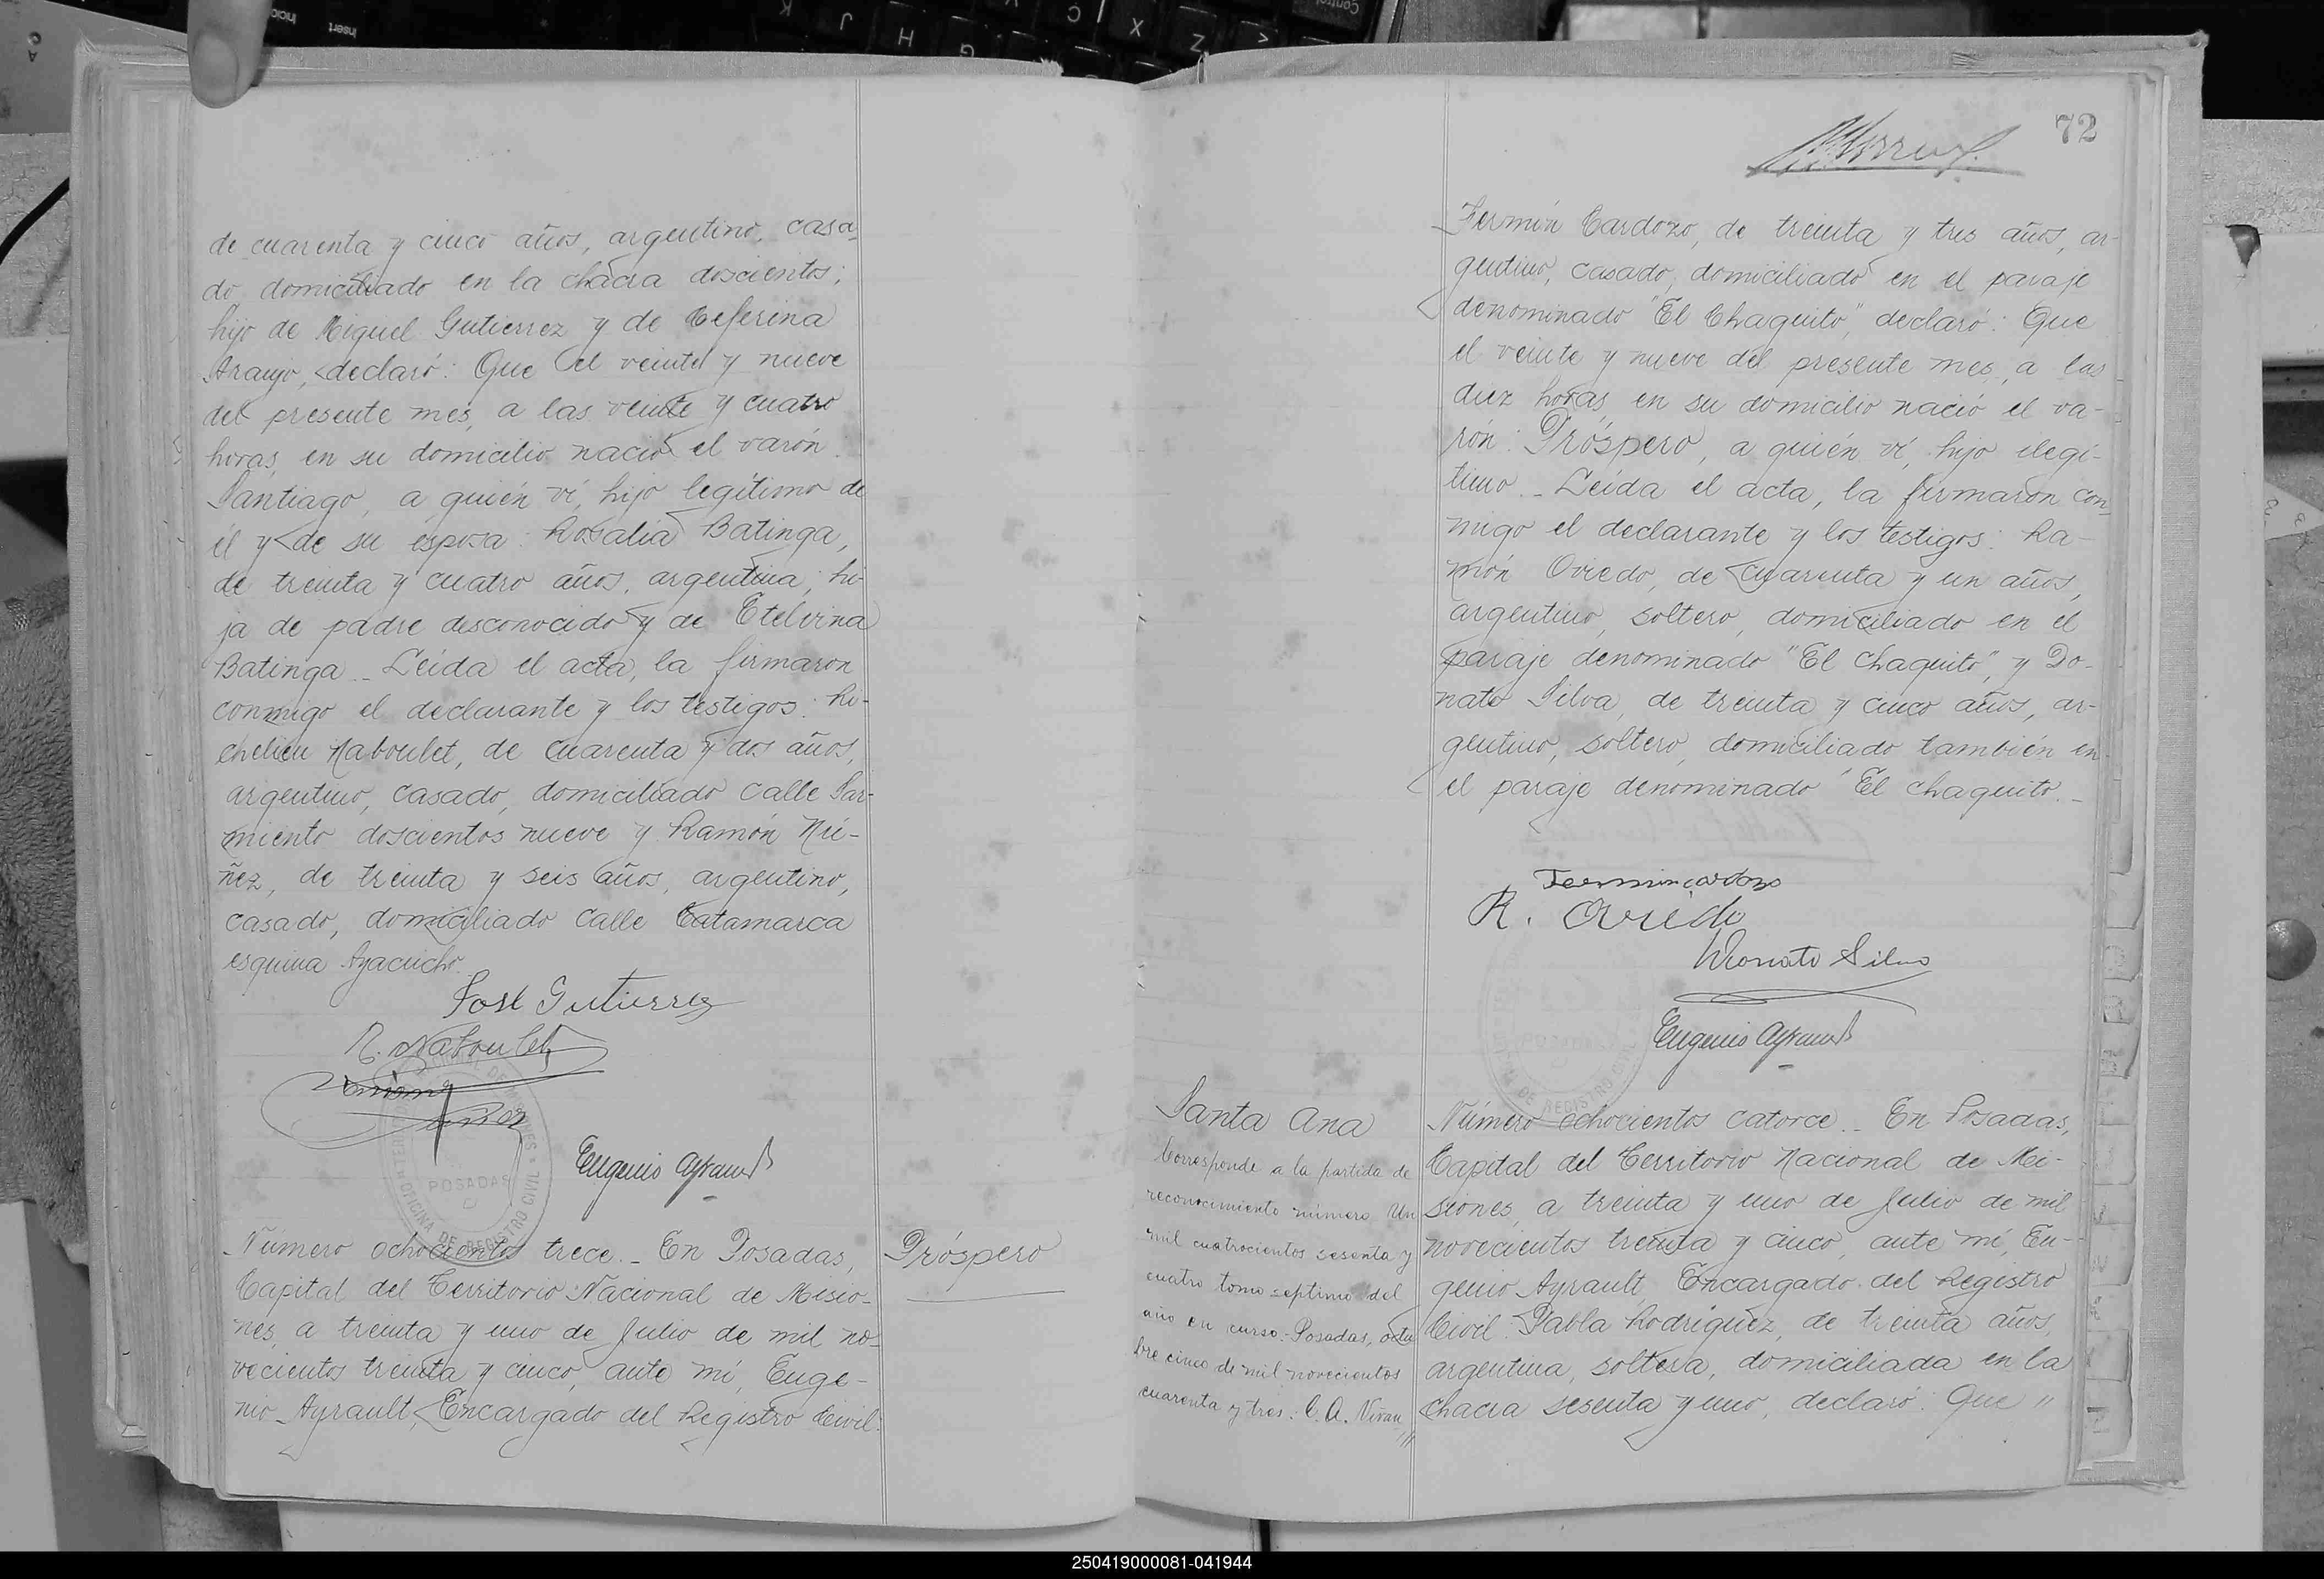 de cuarenta y cinco años, argentino, casa-
do, domiciliado en la chacra doscientos;
hijo de Miguel Gutierrez y de Ceferina
Araujo, declaró: Que el veinte y nueve
del presente mes, a las veinte y cuatro
horas, en su domicilio nació el varón:
Santiago, a quién ví, hijo legítimo de
él y de su esposa: Rosalia Batinga,
de treinta y cuatro años, argentina, hi-
ja de padre desconocido y de Etelvina
Batinga._ Leída el acta, la firmaron
conmigo el declarante y los testigos: Ri-
chelieu Naboulet, de cuarenta y dos años,
argentino, casado, domiciliado calle Sar-
miento doscientos nueve y Ramón Nú-
ñez, de treinta y seis años, argentino,
casado, domiciliado calle Catamarca
esquina Ayacucho.
José Gutierrez
R. Naboulet
Eugenio Ayrault
POSADAS
OFICINA DE REGISTRO CIVIL
Próspero
Número ochocientos trece._ En Posadas,
Capital del Territorio Nacional de Misio-
nes, a treinta y uno de Julio de mil no-
vecientos treinta y cinco, ante mí, Euge-
nio Ayrault, Encargado del Registro Civil:
72
Fermín Cardozo, de treinta y tres años, ar-
gentino, casado, domiciliado en el paraje
denominado "El Chaquito", declaró: Que
el veinte y nueve del presente mes, a las
diez horas, en su domicilio nació el va-
rón: Próspero, a quién ví, hijo ilegí-
timo._ Leída el acta, la firmaron con-
migo el declarante y los testigos: Ra-
món Oviedo, de cuarenta y un años,
argentino, soltero, domiciliado en el
paraje denominado "El Chaquito", y Do-
nato Silva, de treinta y cinco años, ar-
gentino, soltero, domiciliado también en
el paraje denominado "El Chaquito._
Fermin cardozo
R. Oviedo
Donato Silva
Eugenio Ayrault
DE REGISTRO CIVIL
Santa Ana
Corresponde a la partida de
reconocimiento número Un
mil cuatrocientos sesenta y
cuatro tomo septimo del
año en curso.- Posadas, octu
bre cinco de mil novecientos
cuarenta y tres.
Número ochocientos catorce._ En Posadas,
Capital del Territorio Nacional de Mi-
siones, a treinta y uno de Julio de mil
novecientos treinta y cinco, ante mí, Eu-
genio Ayrault, Encargado del Registro
Civil: Pabla Rodríguez, de treinta años,
argentina, soltera, domiciliada en la
chacra sesenta y uno, declaró: Que "
250419000081-041944